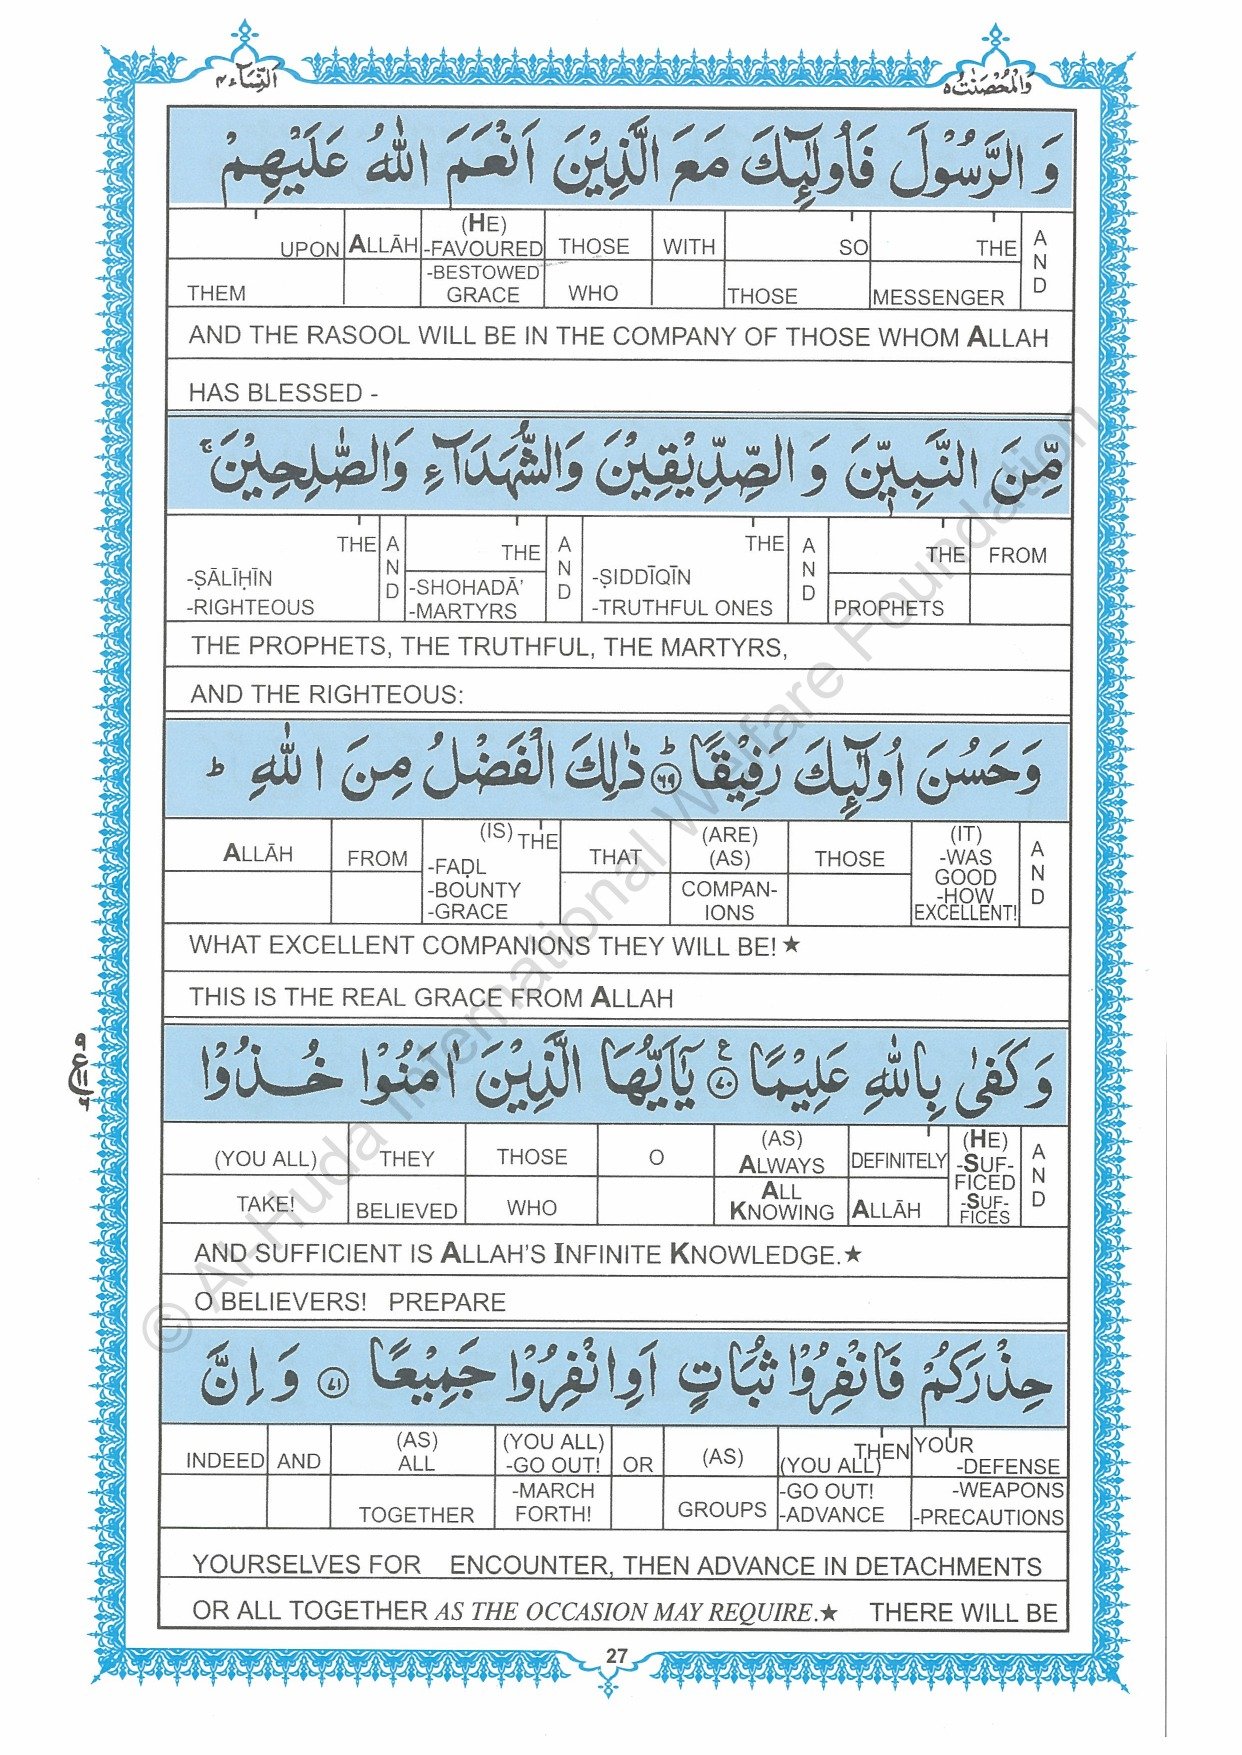 النِّسَآء ۴
وَالْمُحْصَنٰتُ ۵
وَ الرَّسُوْلَ فَاُولٰٓئِكَ مَعَ الَّذِيْنَ اَنْعَمَ اللّٰهُ عَلَيْهِمْ
UPON ALLĀH (HE) -FAVOURED THOSE WITH SO THE AND
THEM -BESTOWED GRACE WHO THOSE MESSENGER
AND THE RASOOL WILL BE IN THE COMPANY OF THOSE WHOM ALLAH
HAS BLESSED -
مِّنَ النَّبِيّٖنَ وَ الصِّدِّيْقِيْنَ وَالشُّهَدَآءِ وَالصّٰلِحِيْنَ ۚ
THE AND THE AND THE AND THE FROM
-ṢĀLĪḤĪN -SHOHADĀ’ -ṢIDDĪQĪN
-RIGHTEOUS -MARTYRS -TRUTHFUL ONES PROPHETS
THE PROPHETS, THE TRUTHFUL, THE MARTYRS,
AND THE RIGHTEOUS:
وَحَسُنَ اُولٰٓئِكَ رَفِيْقًا ؕ ۶۹ ذٰلِكَ الْفَضْلُ مِنَ اللّٰهِ ؕ
ALLĀH FROM (IS) THE THAT (ARE) (AS) THOSE (IT) -WAS GOOD AND
-FAḌL -BOUNTY -GRACE COMPAN- IONS -HOW EXCELLENT!
WHAT EXCELLENT COMPANIONS THEY WILL BE!★
THIS IS THE REAL GRACE FROM ALLAH
وَ كَفٰى بِاللّٰهِ عَلِيْمًا ۷۰ ع يٰۤاَيُّهَا الَّذِيْنَ اٰمَنُوْا خُذُوْا
۹ ع ۱۱ ۶
(YOU ALL) THEY THOSE O (AS) ALWAYS DEFINITELY (HE) -SUF- FICED AND
TAKE! BELIEVED WHO ALL KNOWING ALLĀH -SUF- FICES
AND SUFFICIENT IS ALLAH’S INFINITE KNOWLEDGE.★
O BELIEVERS! PREPARE
حِذْرَكُمْ فَانْفِرُوْا ثُبَاتٍ اَوِانْفِرُوْا جَمِيْعًا ۷۱ وَ اِنَّ
INDEED AND (AS) ALL (YOU ALL) -GO OUT! OR (AS) THEN (YOU ALL) YOUR -DEFENSE
TOGETHER -MARCH FORTH! GROUPS -GO OUT! -ADVANCE -WEAPONS -PRECAUTIONS
YOURSELVES FOR ENCOUNTER, THEN ADVANCE IN DETACHMENTS
OR ALL TOGETHER AS THE OCCASION MAY REQUIRE.★ THERE WILL BE
27
© Al-Huda International Welfare Foundation